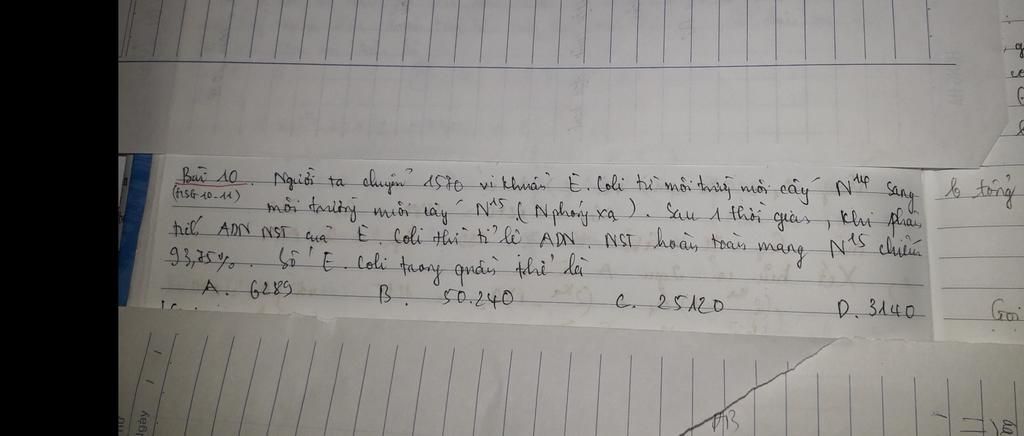 Bài 10. Người ta chuyển 1570 vi khuẩn E. Coli từ môi trường nuôi cấy N¹⁴ sang
(HSG-10-11) môi trường nuôi cấy N¹⁵ (N phóng xạ). Sau 1 thời gian, khi phân
tích ADN NST của E. Coli thì tỉ lệ ADN. NST hoàn toàn mang N¹⁵ chiếm
93,75%. Số E. Coli trong quần thể là
A. 6289 B. 50.240 C. 25120 D. 3140
tổng
Gọi
AB
Ngày